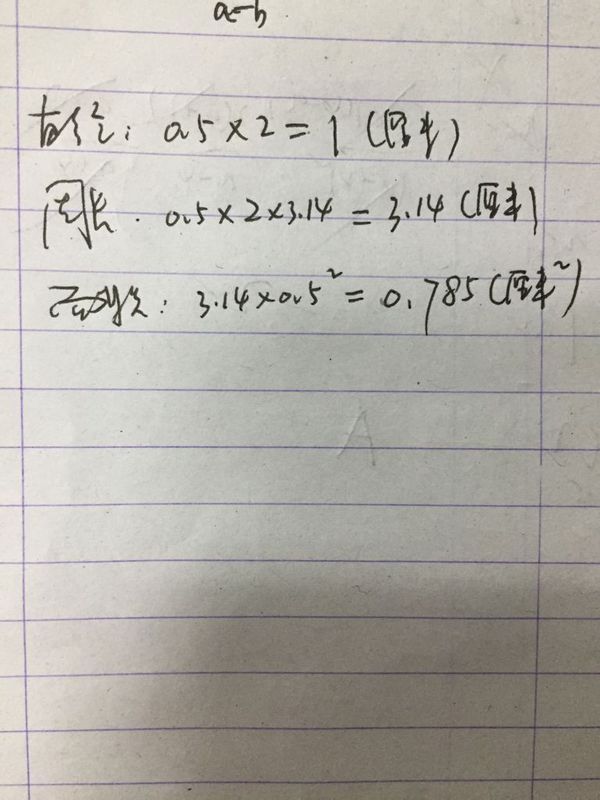 a-b
直径：0.5×2=1（厘米）
周长．0.5×2×3.14=3.14（厘米）
面积：3.14×0.5²=0.785（厘米²）